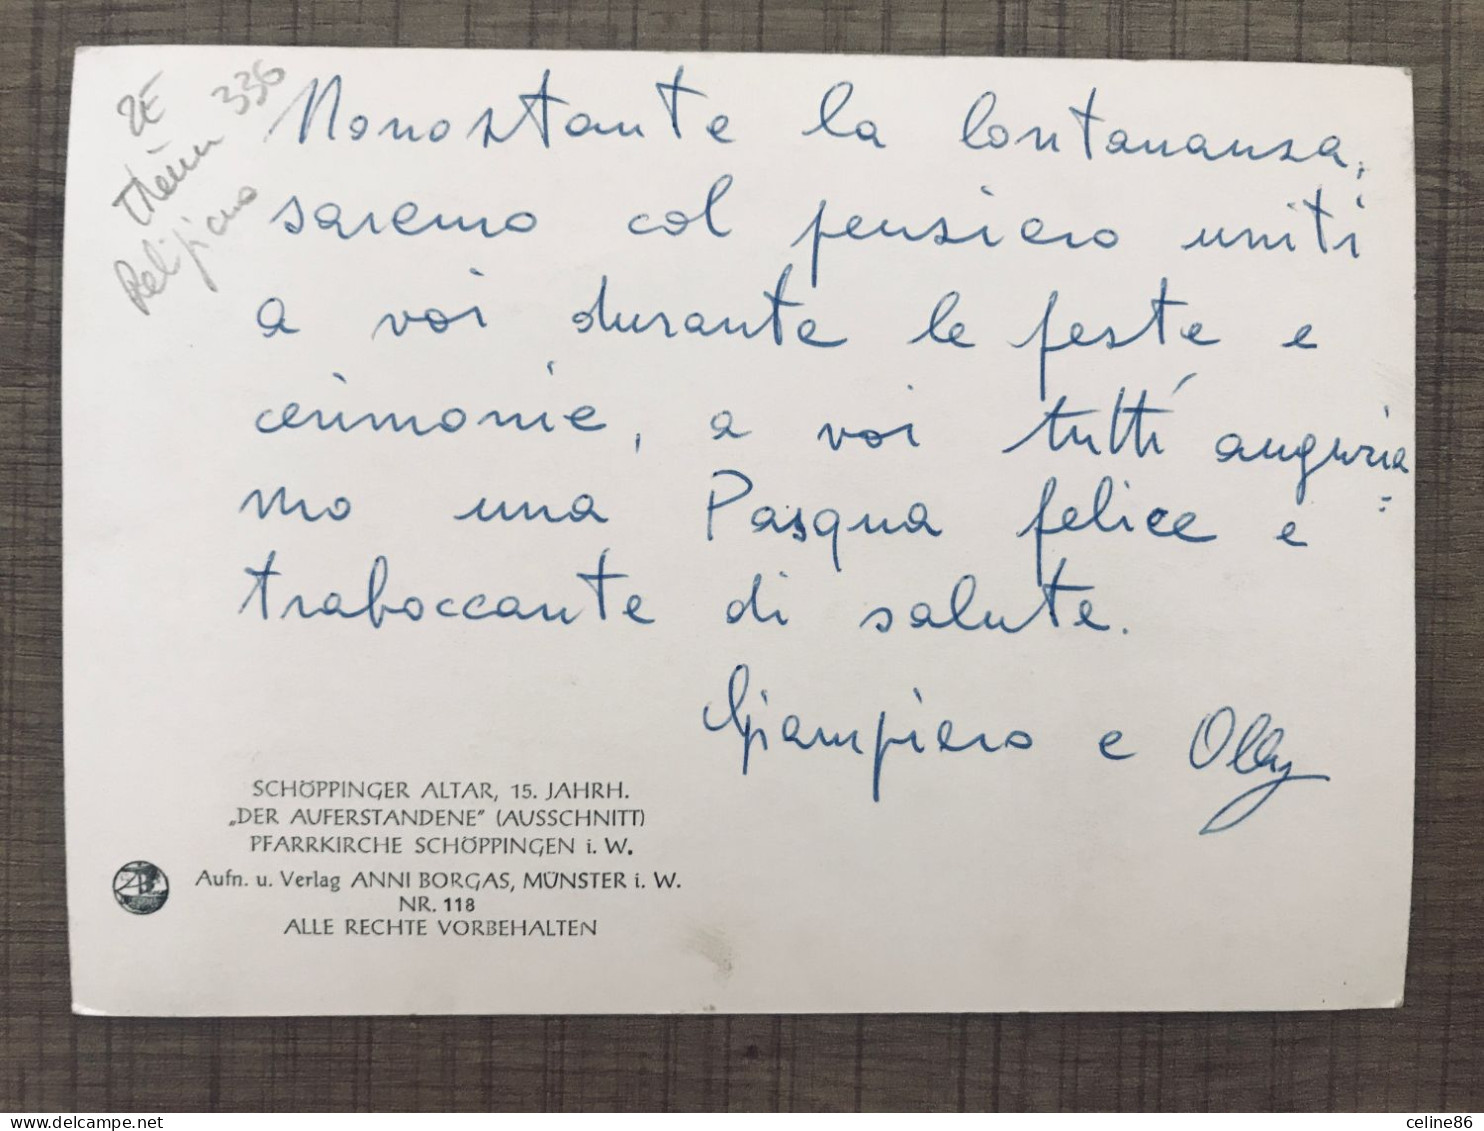 2€
thème 336
Religieux
Nonostante la lontananza,
saremo col pensiero uniti
a voi durante le feste e
cerimonie, a voi tutti auguria
mo una Pasqua felice e
traboccante di salute.
Giampiero e Olly
SCHÖPPINGER ALTAR, 15. JAHRH.
„DER AUFERSTANDENE" (AUSSCHNITT)
PFARRKIRCHE SCHÖPPINGEN i. W.
Aufn. u. Verlag ANNI BORGAS, MÜNSTER i. W.
NR. 118
ALLE RECHTE VORBEHALTEN
delcampe.net
celine86